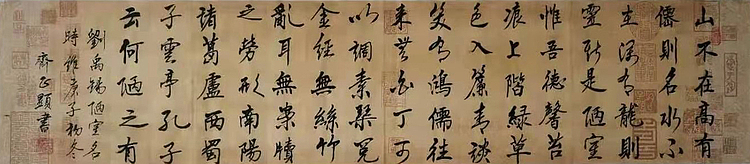 山不在高有
僊則名水不
在深有龍則
靈斯是陋室
惟吾德馨苔
痕上階綠草
色入簾青談
笑有鴻儒往
來無白丁可
以調素琴閱
金經無絲竹
亂耳無案牘
之勞形南陽
諸葛廬西蜀
子雲亭孔子
云何陋之有
劉禹錫陋室名
時維庚子初冬
齊正顥書